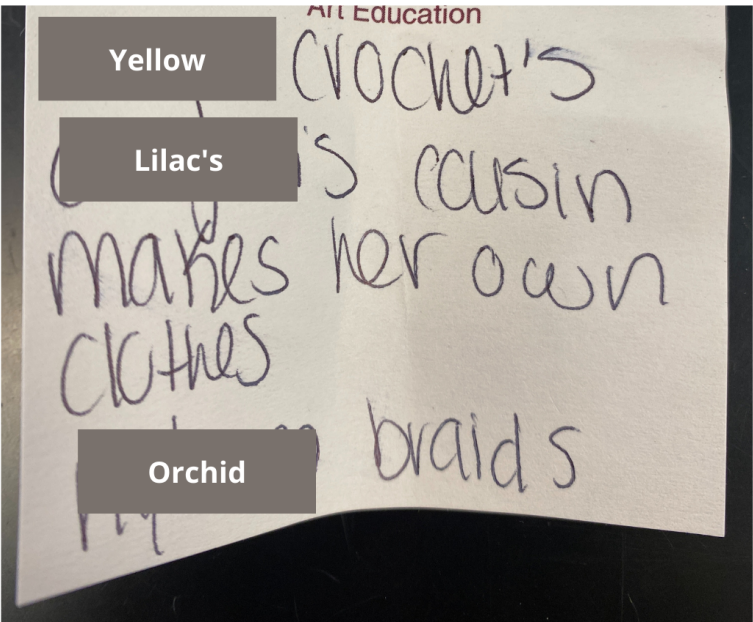 Art Education
Yellow crochet's
Lilac's 's cousin
makes her own
clothes
Orchid braids